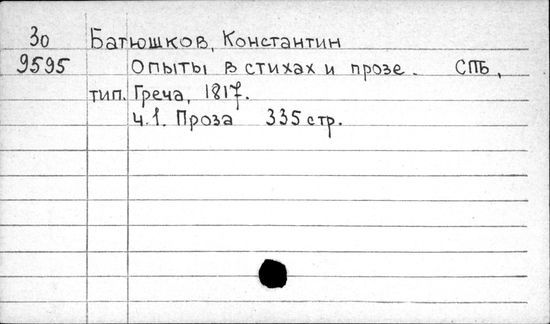 30 Батюшков, Константин
9595 Опыты в стихах и прозе. СПБ,
тип. Греча, 1817.
ч.1. Проза 335 стр.